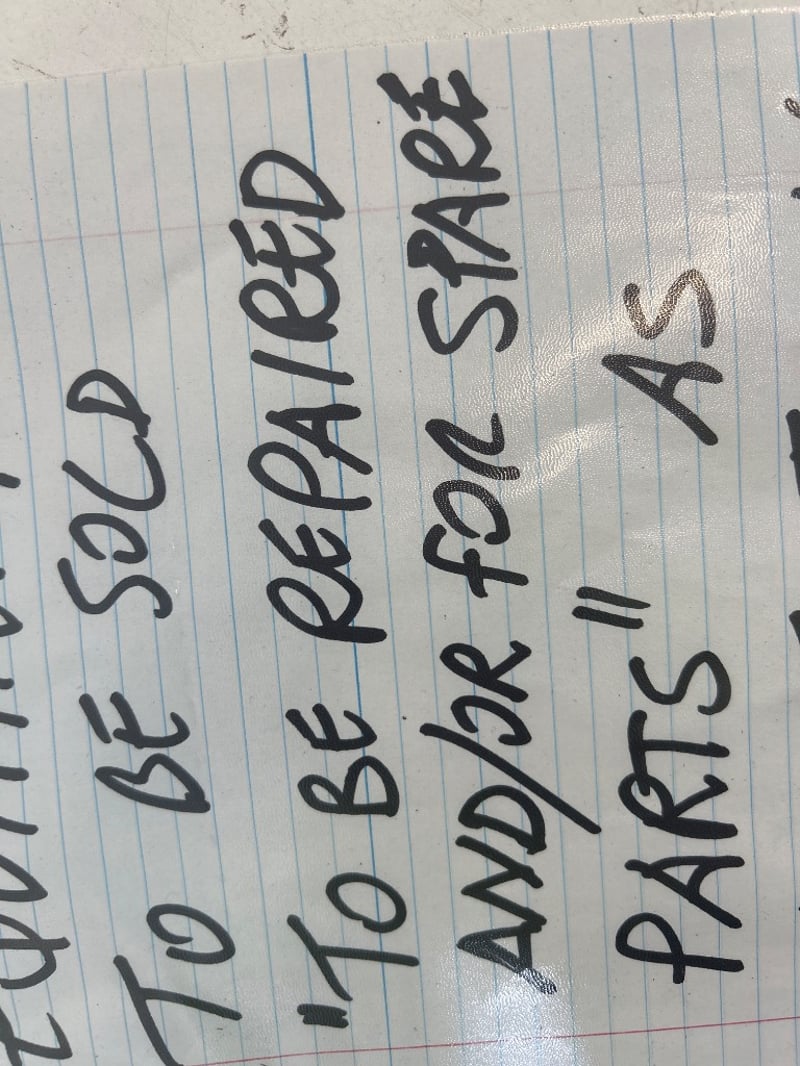 TO BE SOLD
"TO BE REPAIRED
AND/OR FOR SPARE
PARTS" AS